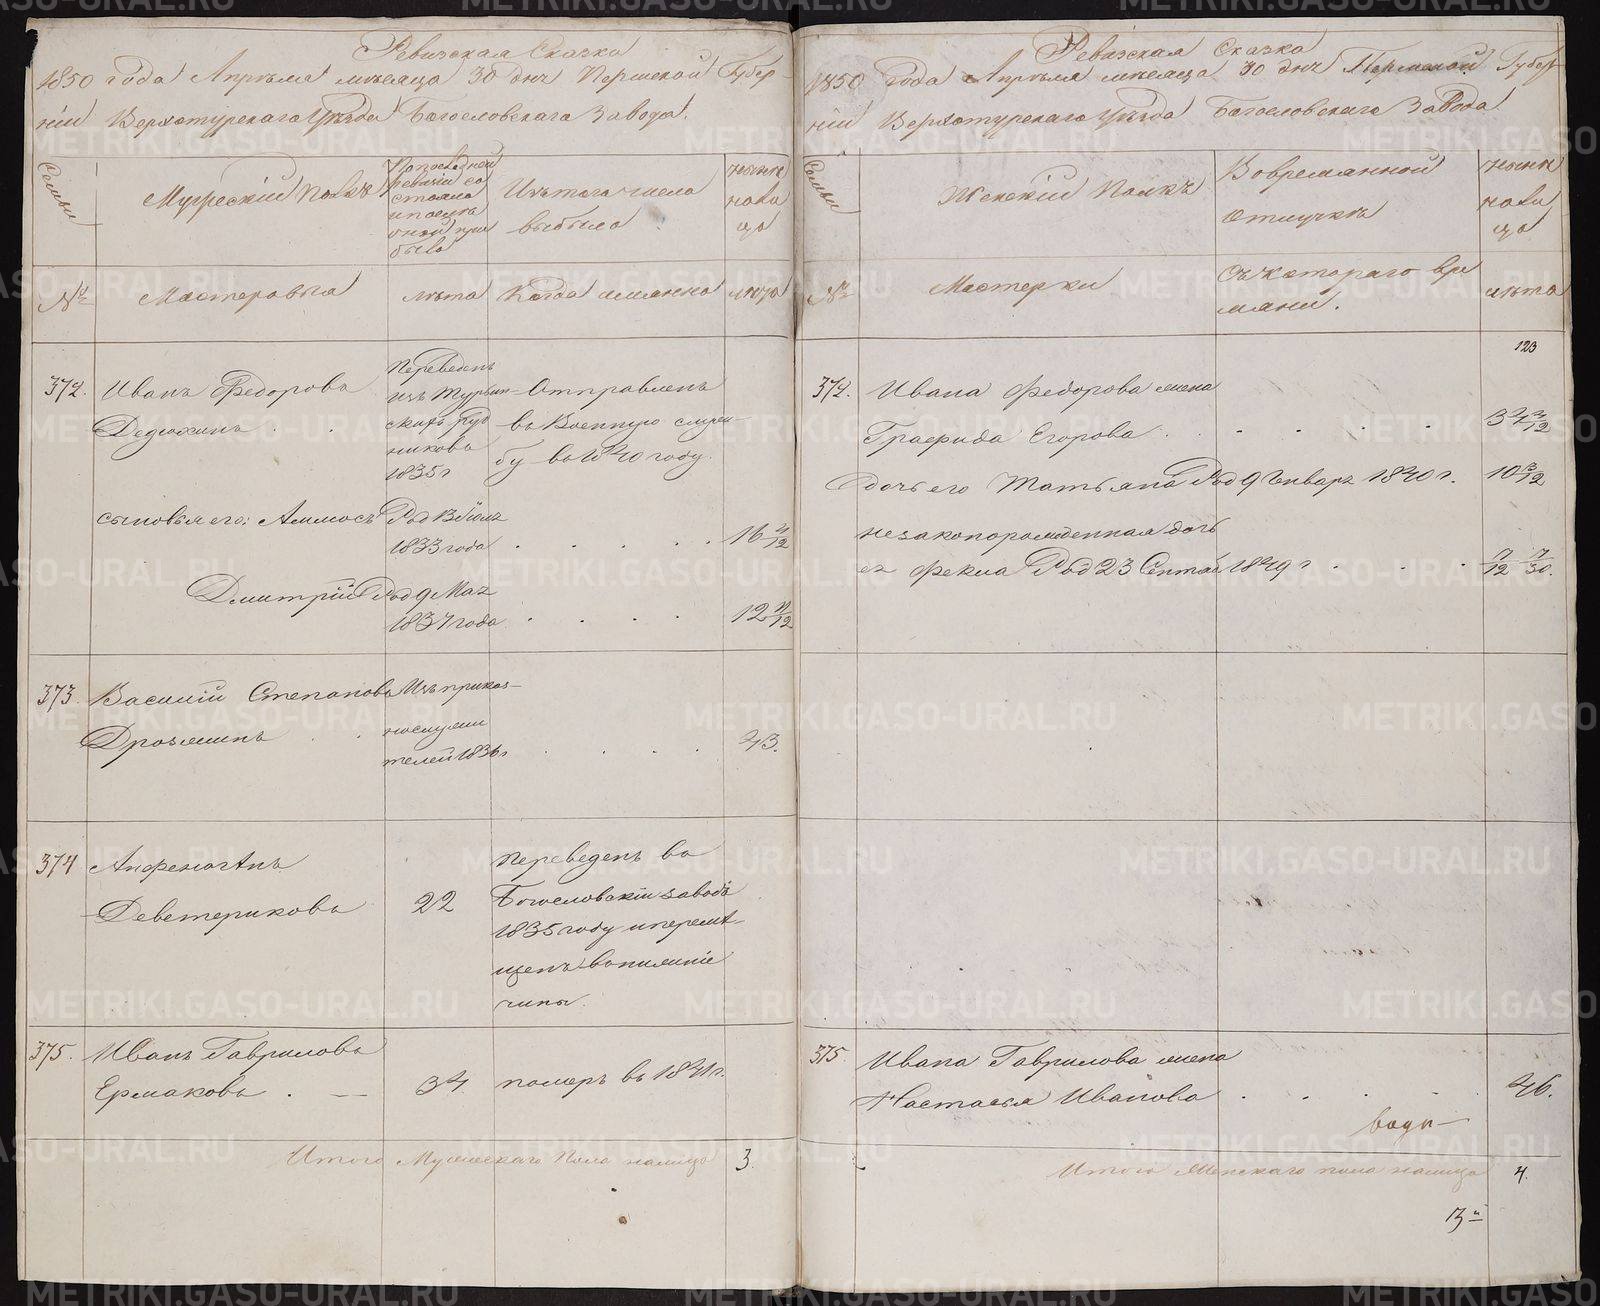 Ревизская Сказка
1850 года Апрѣля мѣсяца 30 дня Пермской Губер-
ніи Верхотурскаго Уѣзда Богословскаго Завода.
Семьи
Мужескій Полъ
По послѣдней
ревизіи со
стояло
и послѣ
оной при
было
Изъ того числа
выбыло
нынѣ
нали
цо
№
Мастеровыя
лѣта
Когда именно
лѣта
372.
Иванъ Федоровъ
Дедюхинъ . .
Переведенъ
изъ Турьин-
скихъ руд
никовъ
1835 г
Отправленъ
въ Военную служ-
бу въ 1840 году.
сыновья его: Аммосъ
Род 8 Іюля
1833 года . . . . .
16 9/12
Дмитрій
Род 9 Мая
1837 года . . . .
12 11/12
373.
Василій Степановъ
Дрозжинъ . .
Изъ приказ-
нослужи
телей 1836 г . . . .
43.
374
Анфеногѣнъ
Деветериковъ
22
переведенъ въ
Богословскій заводъ
1835 году и перемѣ-
щенъ въ нижніе
чины.
375.
Иванъ Гавриловъ
Ермаковъ . —
34.
померъ въ 1841 г.
Итого Мужескаго Пола налицо
3.
Ревизская Сказка
1850 года Апрѣля мѣсяца 30 дня Пермской Губер
ніи Верхотурскаго Уѣзда Богословскаго Завода
Семьи
Женскій Полъ
Во временной
отлучкѣ
нынѣ
нали
цо
№
Мастерки
Съ котораго вре
мяни.
лѣта
123
372.
Ивана Федорова жена
Графида Егорова . . . . . .
дочь его Татьяна Род 9 Генваря 1840 г.
10 3/12
незаконорожденная дочь
ея Фекла Род 23 Сентяб 1849 г . . .
7/12 7/30.
375.
Ивана Гаврилова жена
Настасья Иванова . . . . .
46.
Итого Женскаго пола налицо
4.
METRIKI.GASO-URAL.RU